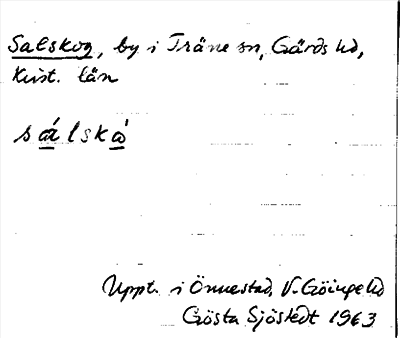 Salskog, by i Träne sn, Gärds hd,
Krist. län
sa᷄lskò
Uppt. i Önnestad, V. Göinge hd
Gösta Sjöstedt 1963